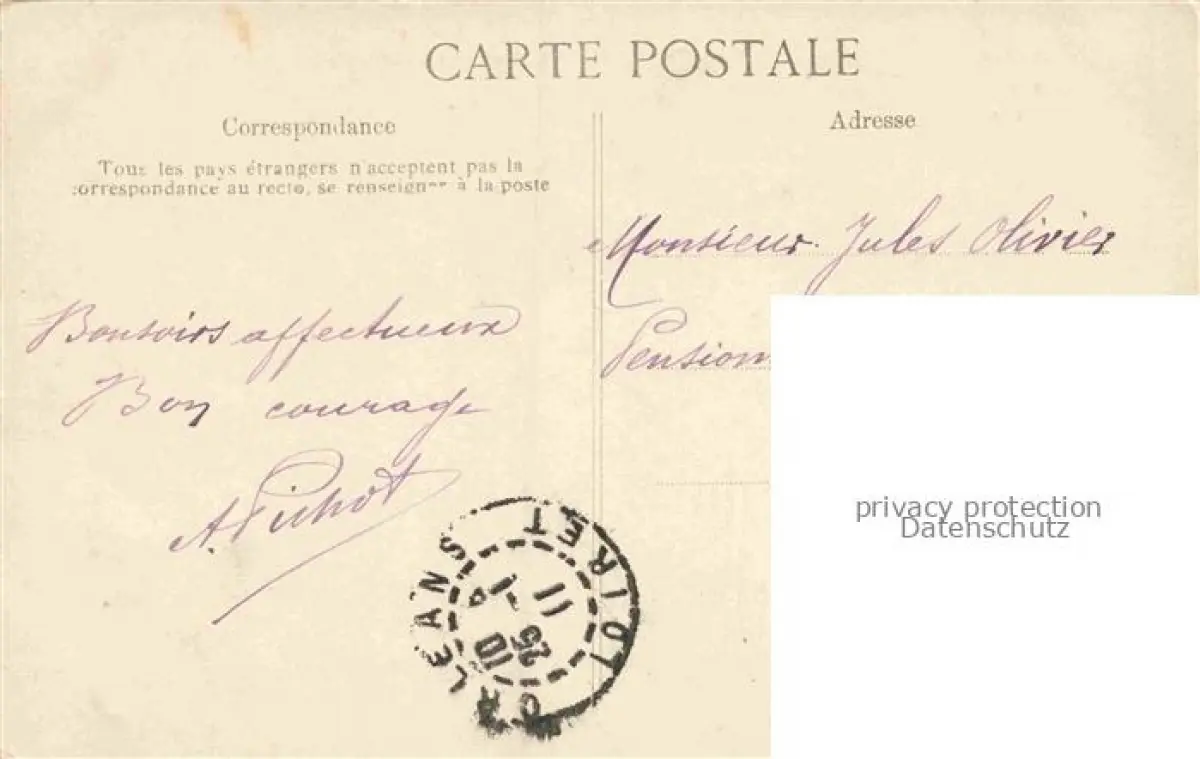 CARTE POSTALE
Correspondance
Tous les pays étrangers n'acceptent pas la
correspondance au recto, se renseigner à la poste
Adresse
Monsieur Jules Olivier
Pension
Bonsoirs affectueux
Bon courage
A. Pichot
ORLEANS
LOIRET
10
25 -1
11
privacy protection
Datenschutz